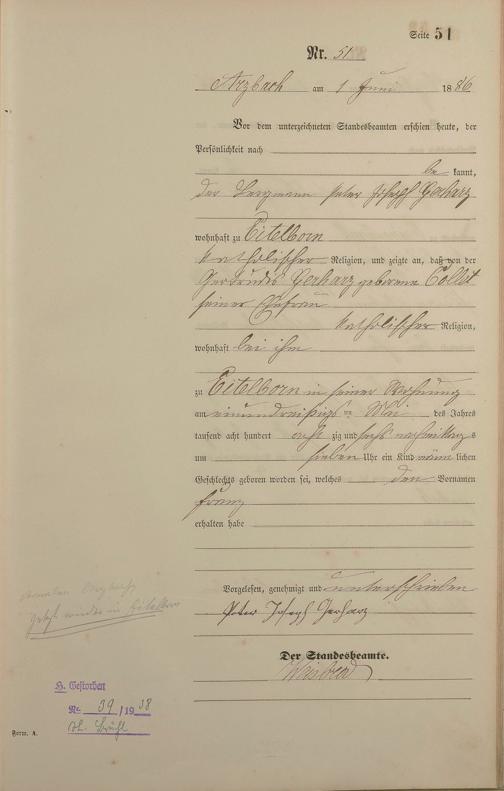 Seite 51
Nr. 51
Arzbach am 1 Juni 1886
Vor dem unterzeichneten Standesbeamten erschien heute, der
Persönlichkeit nach
be kannt,
der Bergmann Peter Joseph Gerharz
wohnhaft zu Eitelborn
katholischer Religion, und zeigte an, daß von der
Gertrudis Gerharz geborene Collet
seiner Ehefrau
katholischer Religion,
wohnhaft bei ihm
zu Eitelborn in seiner Wohnung
am einunddreißigsten Mai des Jahres
tausend acht hundert acht zig und sechs nachmittags
um sieben Uhr ein Kind männ lichen
Geschlechts geboren worden sei, welches den Vornamen
Franz
erhalten habe
Vorgelesen, genehmigt und unterschrieben
Peter Joseph Gerharz
Der Standesbeamte.
Weisbrod
jetzt wieder in Eitelborn
H. Gestorben
Nr. 39/1938
Form. A.